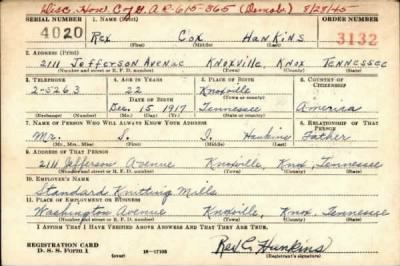 Disc. Hon. A R-615-365 (Demob) 8/28/45
SERIAL NUMBER 1. NAME (Print) ORDER NUMBER
4020 Rex Cox Hankins 3132
(First) (Middle) (Last)
2. ADDRESS (Print)
2111 Jefferson Avenue Knoxville, Knox Tennessee
(Number and street or R. F. D. number) (Town) (County) (State)
3. TELEPHONE 4. AGE IN YEARS 5. PLACE OF BIRTH 6. COUNTRY OF CITIZENSHIP
2-5263 22 Knoxville
DATE OF BIRTH (Town or county)
Dec. 15 1917 Tennessee America
(Mo.) (Day) (Yr.) (State or country)
7. NAME OF PERSON WHO WILL ALWAYS KNOW YOUR ADDRESS 8. RELATIONSHIP OF THAT PERSON
Mr. S. I. Hankins Father
(Mr., Mrs., Miss) (First) (Middle) (Last)
9. ADDRESS OF THAT PERSON
2111 Jefferson Avenue Knoxville, Knox, Tennessee
(Number and street or R. F. D. number) (Town) (County) (State)
10. EMPLOYER'S NAME
Standard Knitting Mills
11. PLACE OF EMPLOYMENT OR BUSINESS
Washington Avenue Knoxville, Knox, Tennessee
(Number and street or R. F. D. number) (Town) (County) (State)
I AFFIRM THAT I HAVE VERIFIED ABOVE ANSWERS AND THAT THEY ARE TRUE.
REGISTRATION CARD
D. S. S. Form 1 (over) 16-17105
Rex C. Hankins
(Registrant's signature)